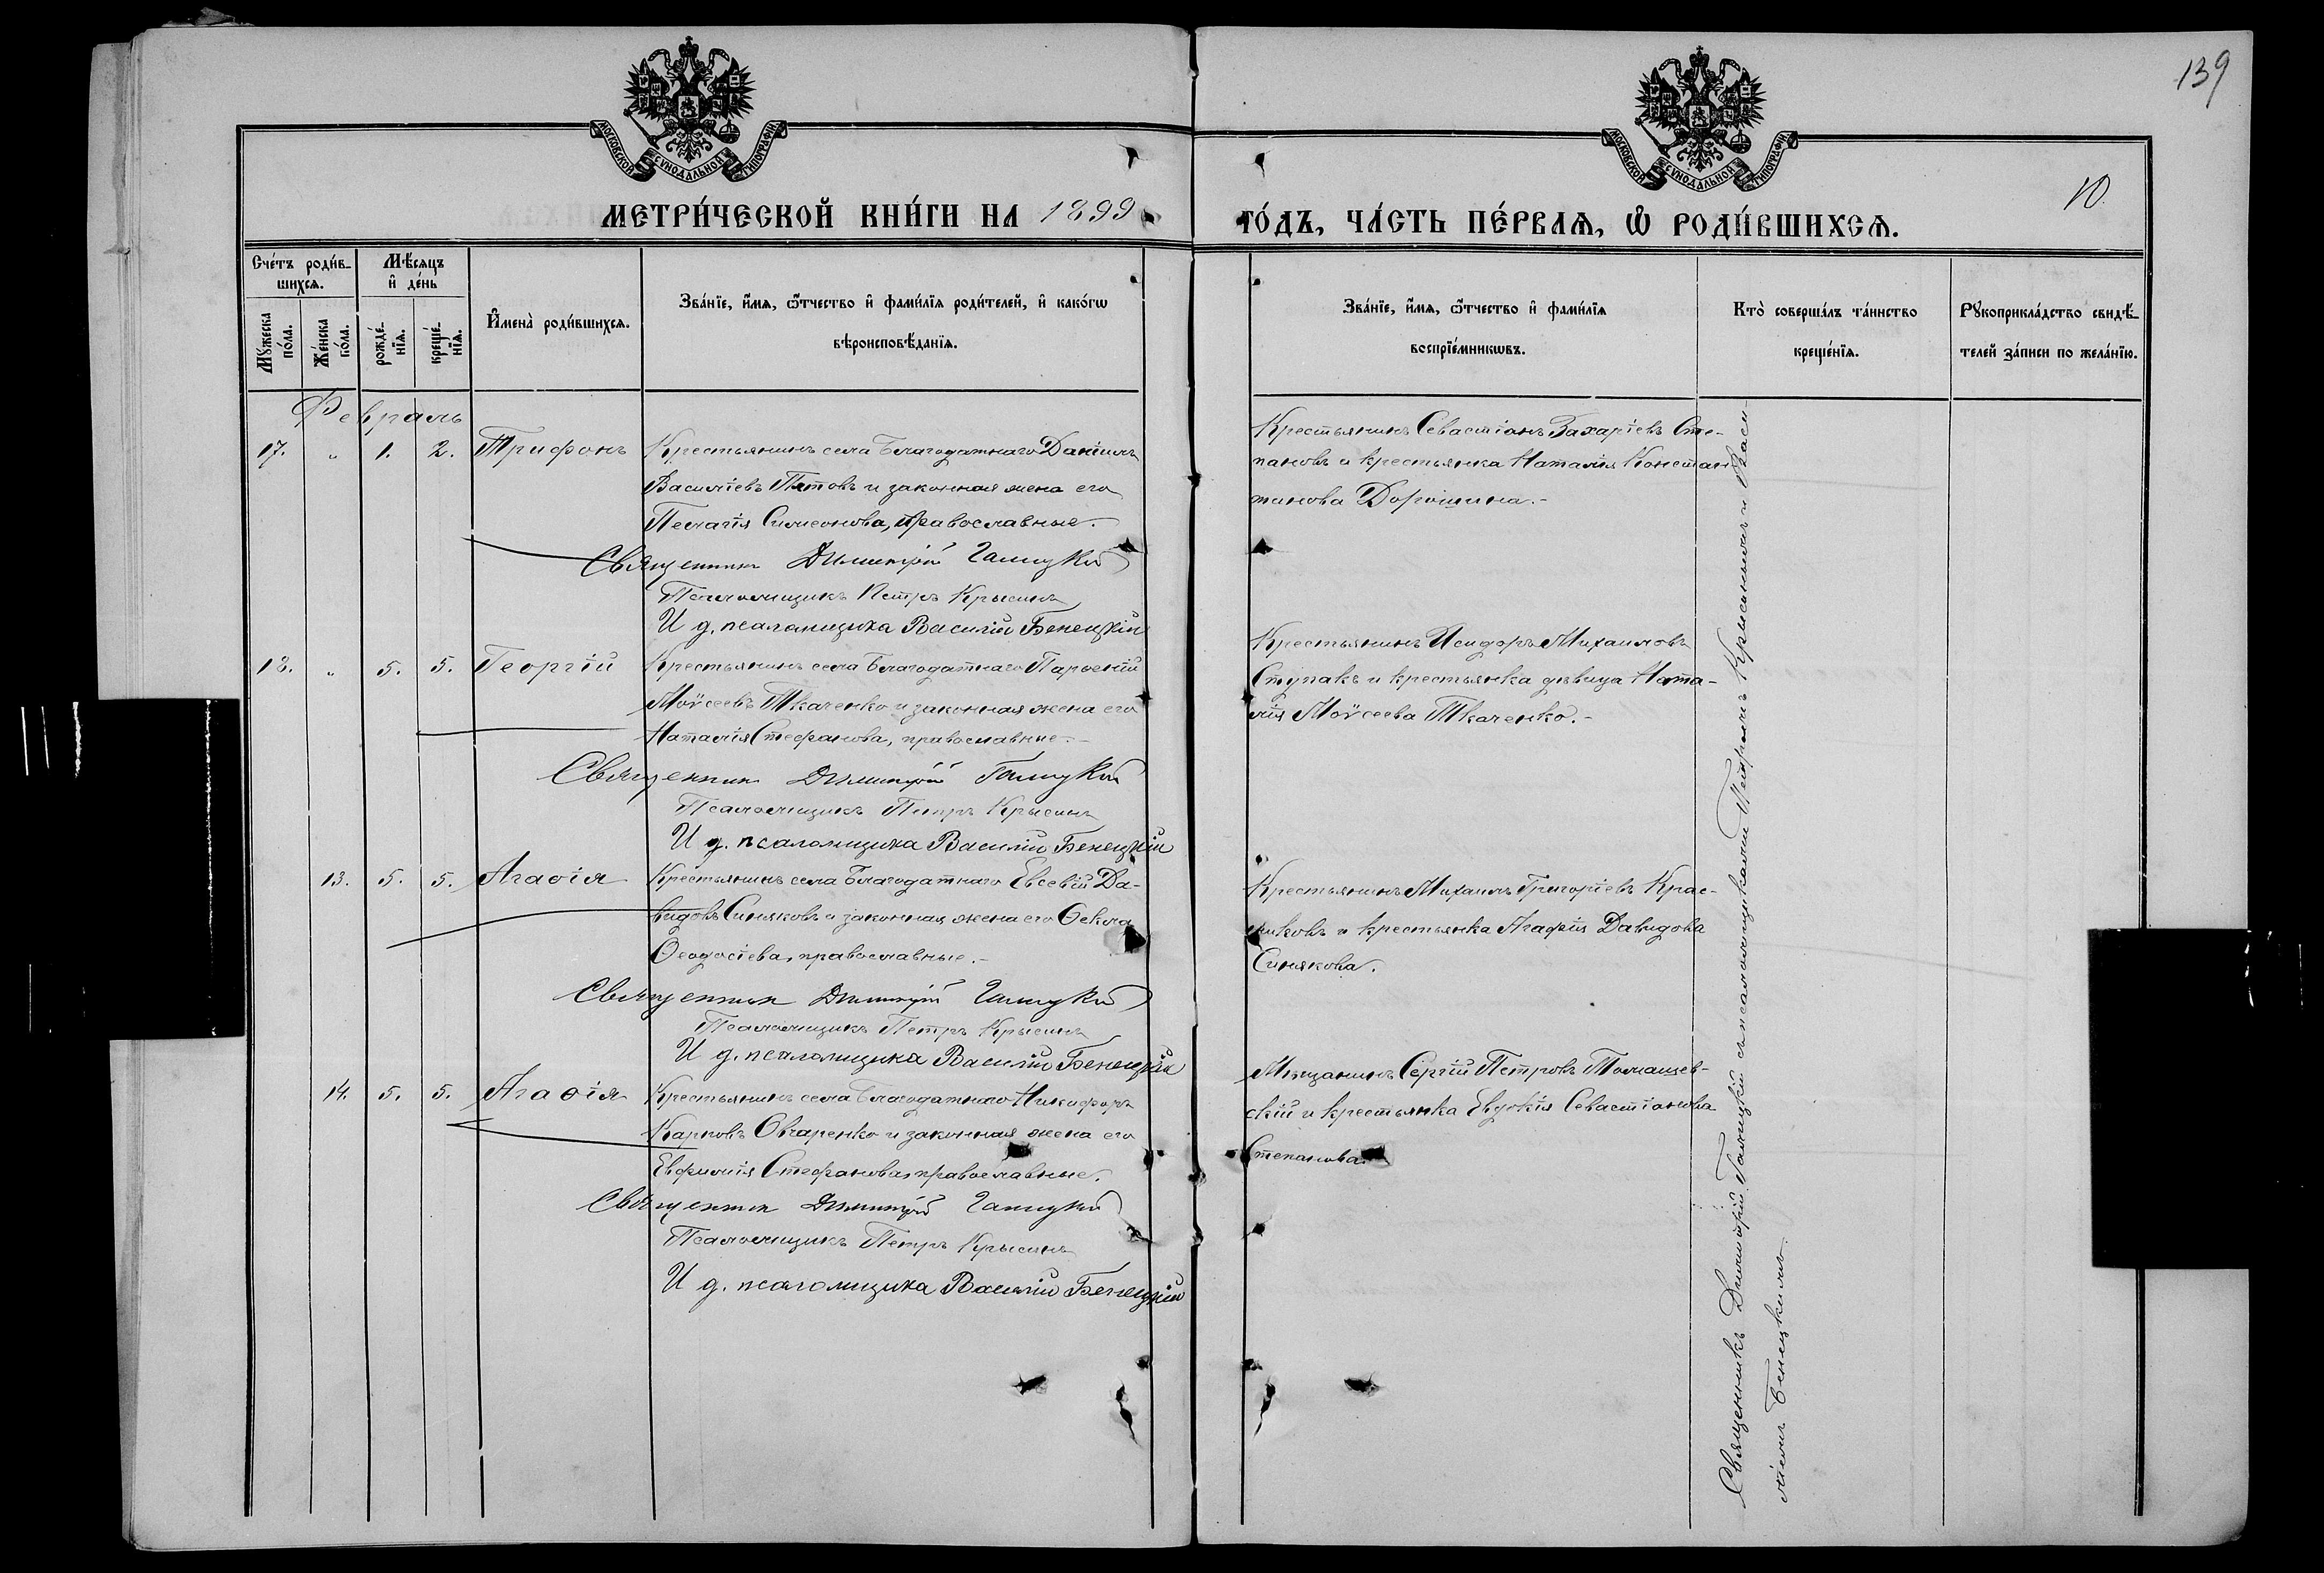 139
10.
МОСКОВСКОЙ СѴНОДАЛЬНОЙ ТИПОГРАФІИ
МОСКОВСКОЙ СѴНОДАЛЬНОЙ ТИПОГРАФІИ
МЕТРИ́ЧЕСКОЙ КНИ́ГИ НА 1899 ГО́ДЪ, ЧА́СТЬ ПЕ́РВАѦ, Ѡ҆ РОДИ́ВШИХСѦ.
Сче́тъ роди́в-
шихсѧ.
Мꙋ́жеска по́ла.
Же́нска по́ла.
Мѣ́сѧцъ
и҆ де́нь
рожде́-нїѧ.
креще́-нїѧ.
И҆мена̀ роди́вшихсѧ.
Зва́нїе, и҆́мѧ, ѻ҆́тчество и҆ фами́лїѧ роди́телей, и҆ како́гѡ
вѣроисповѣ́данїѧ.
Зва́нїе, и҆́мѧ, ѻ҆́тчество и҆ фами́лїѧ
воспрїе́мникѡвъ.
Кто̀ соверша́лъ та́инство
креще́нїѧ.
Рꙋкоприкла́дство свидѣ́-
телей за́писи по жела́нїю.
Февраль
17. „ 1. 2. Трифонъ Крестьянинъ села Благодатнаго Даніилъ
Василіевъ Пятовъ и законная жена его
Пелагія Симеонова, православные.-
Священник Димитрій Галицкій
Псаломщикъ Петръ Крысинъ
И д. псаломщика Василій Бенецкій
Крестьянинъ Севастіанъ Захаріевъ Сте-
пановъ и крестьянка Наталія Констан
тинова Дорошина.-
18. „ 5. 5. Георгій Крестьянинъ села Благодатнаго Парѳеній
Моѵсеевъ Ткаченко и законная жена его
Наталія Стефанова, православные.-
Священник Димитрій Галицкій
Псаломщикъ Петръ Крысинъ
И д. псаломщика Василій Бенецкій
Крестьянинъ Исидоръ Михаиловъ
Ступакъ и крестьянка дѣвица Ната-
лія Моѵсеева Ткаченко.-
13. 5. 5. Агаѳія Крестьянинъ села Благодатнаго Евсевій Да-
видовъ Синяковъ и законная жена его Ѳекла
Ѳеодосіева, православные.-
Священник Димитрій Галицкій
Псаломщикъ Петръ Крысинъ
И д. псаломщика Василій Бенецкій
Крестьянинъ Михаилъ Григоріевъ Крас-
никовъ и крестьянка Агафія Давидова
Синякова.
14. 5. 5. Агаѳія Крестьянинъ села Благодатнаго Никифоръ
Карповъ Овчаренко и законная жена его
Евфимія Стефанова, православные.
Священник Димитрій Галицкій
Псаломщикъ Петръ Крысинъ
И д. псаломщика Василій Бенецкій
Мѣщанинъ Сергій Петровъ Томашев-
скій и крестьянка Евдокія Севастіанова
Степанова.
Священникъ Димитрій Галицкій съ псаломщиками Петромъ Крысинымъ и Васи-
ліемъ Бенецкимъ.